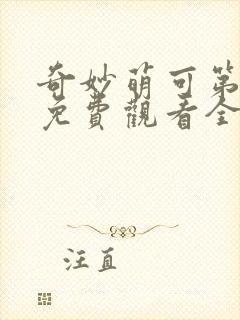 奇妙萌可第
免費觀看全
汪直